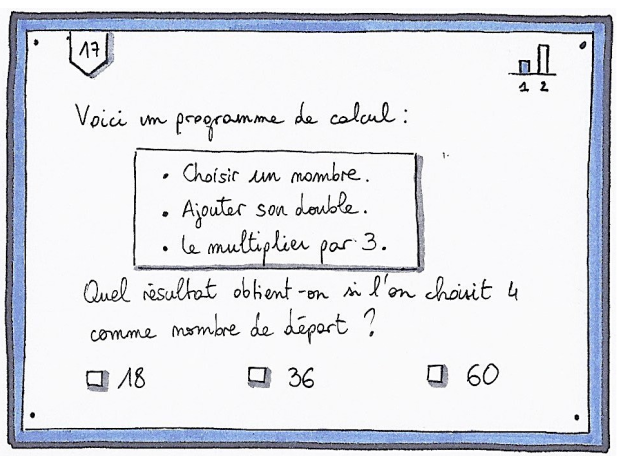 17
1 2
Voici un programme de calcul :
• Choisir un nombre.
• Ajouter son double.
• Le multiplier par 3.
Quel résultat obtient-on si l'on choisit 4
comme nombre de départ ?
☐ 18 ☐ 36 ☐ 60